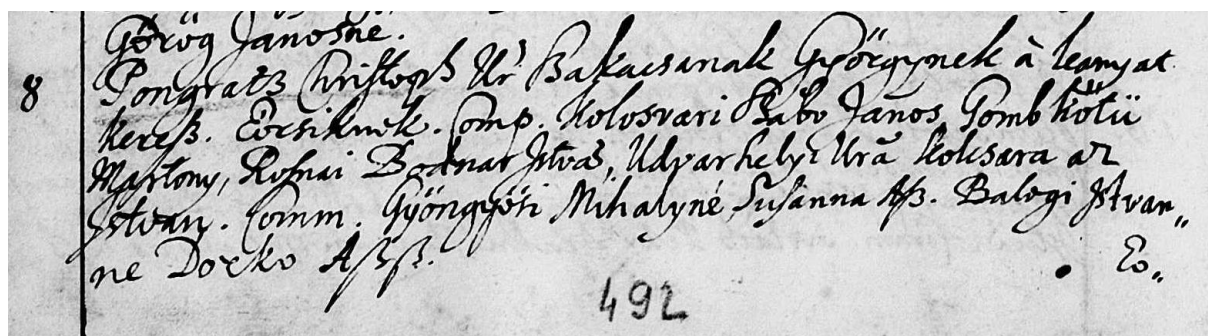 Görög Jánosné.
8 Pongratz Christoph Ur Szakacsanak Györgynek à leanyat
keresz. Comp. Kolosvari Szabo Janos, Gombkötü
Martony, Rosnai Bodnar Istvā, Udvarhelyi Urā Kolcsara az
Istvan. Comm. Gyöngyösi Mihalyné Susanna Aß. Balogi Istvan„
ne Dorko Aßß.
Eo„
492